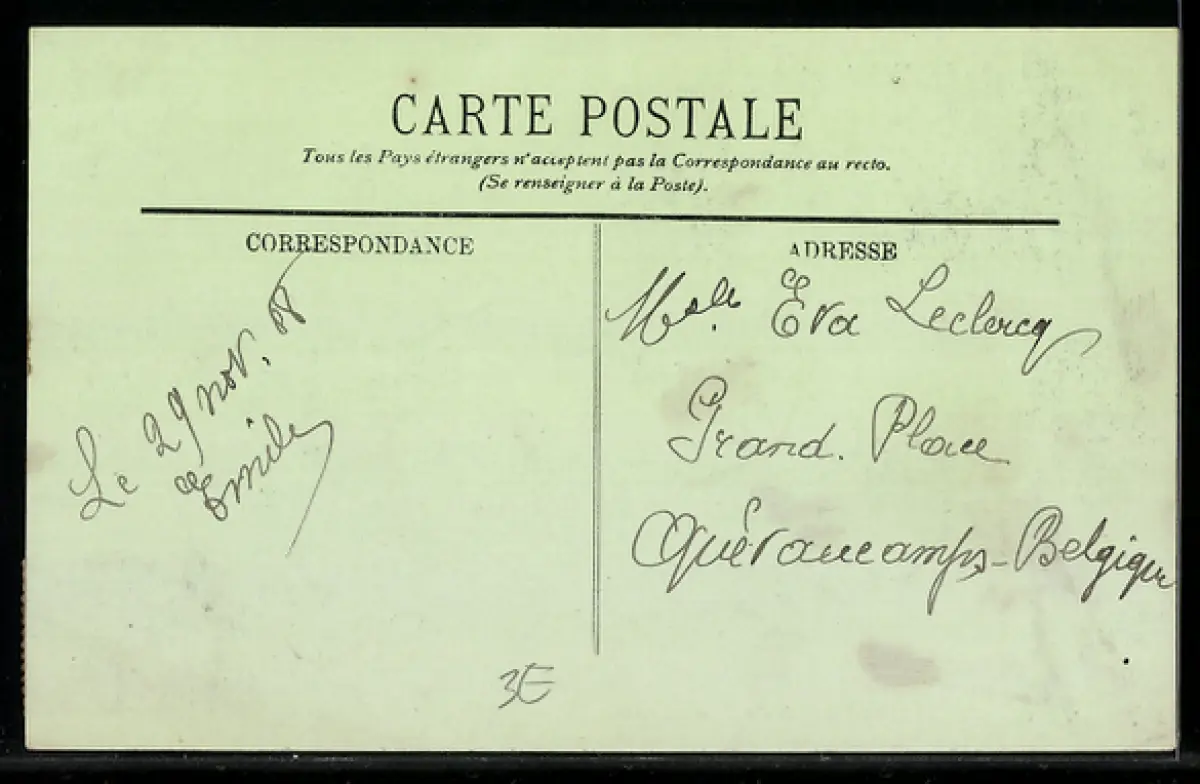 CARTE POSTALE
Tous les Pays étrangers n'acceptent pas la Correspondance au recto.
(Se renseigner à la Poste).
CORRESPONDANCE
Le 29 nov. 08
Emile
ADRESSE
Melle Eva Leclercq
Grand. Place
Quévaucamps - Belgique
3E